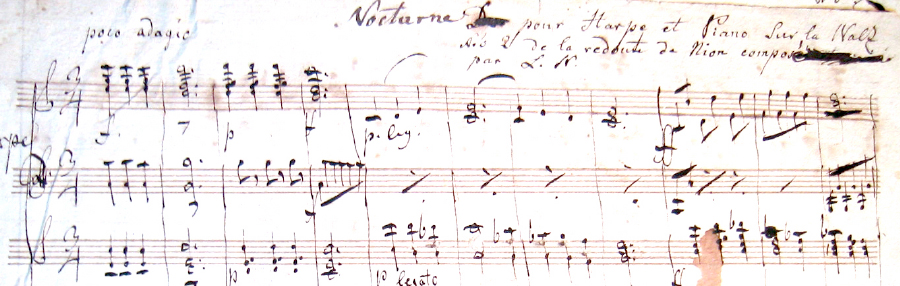 Nocturne pour Harpe et Piano Sur la Walz
poco adagio
No 2 de la redoute de Nion compos
par L. N.
rpe
p
p. leg.
ff
p
p legato
ff